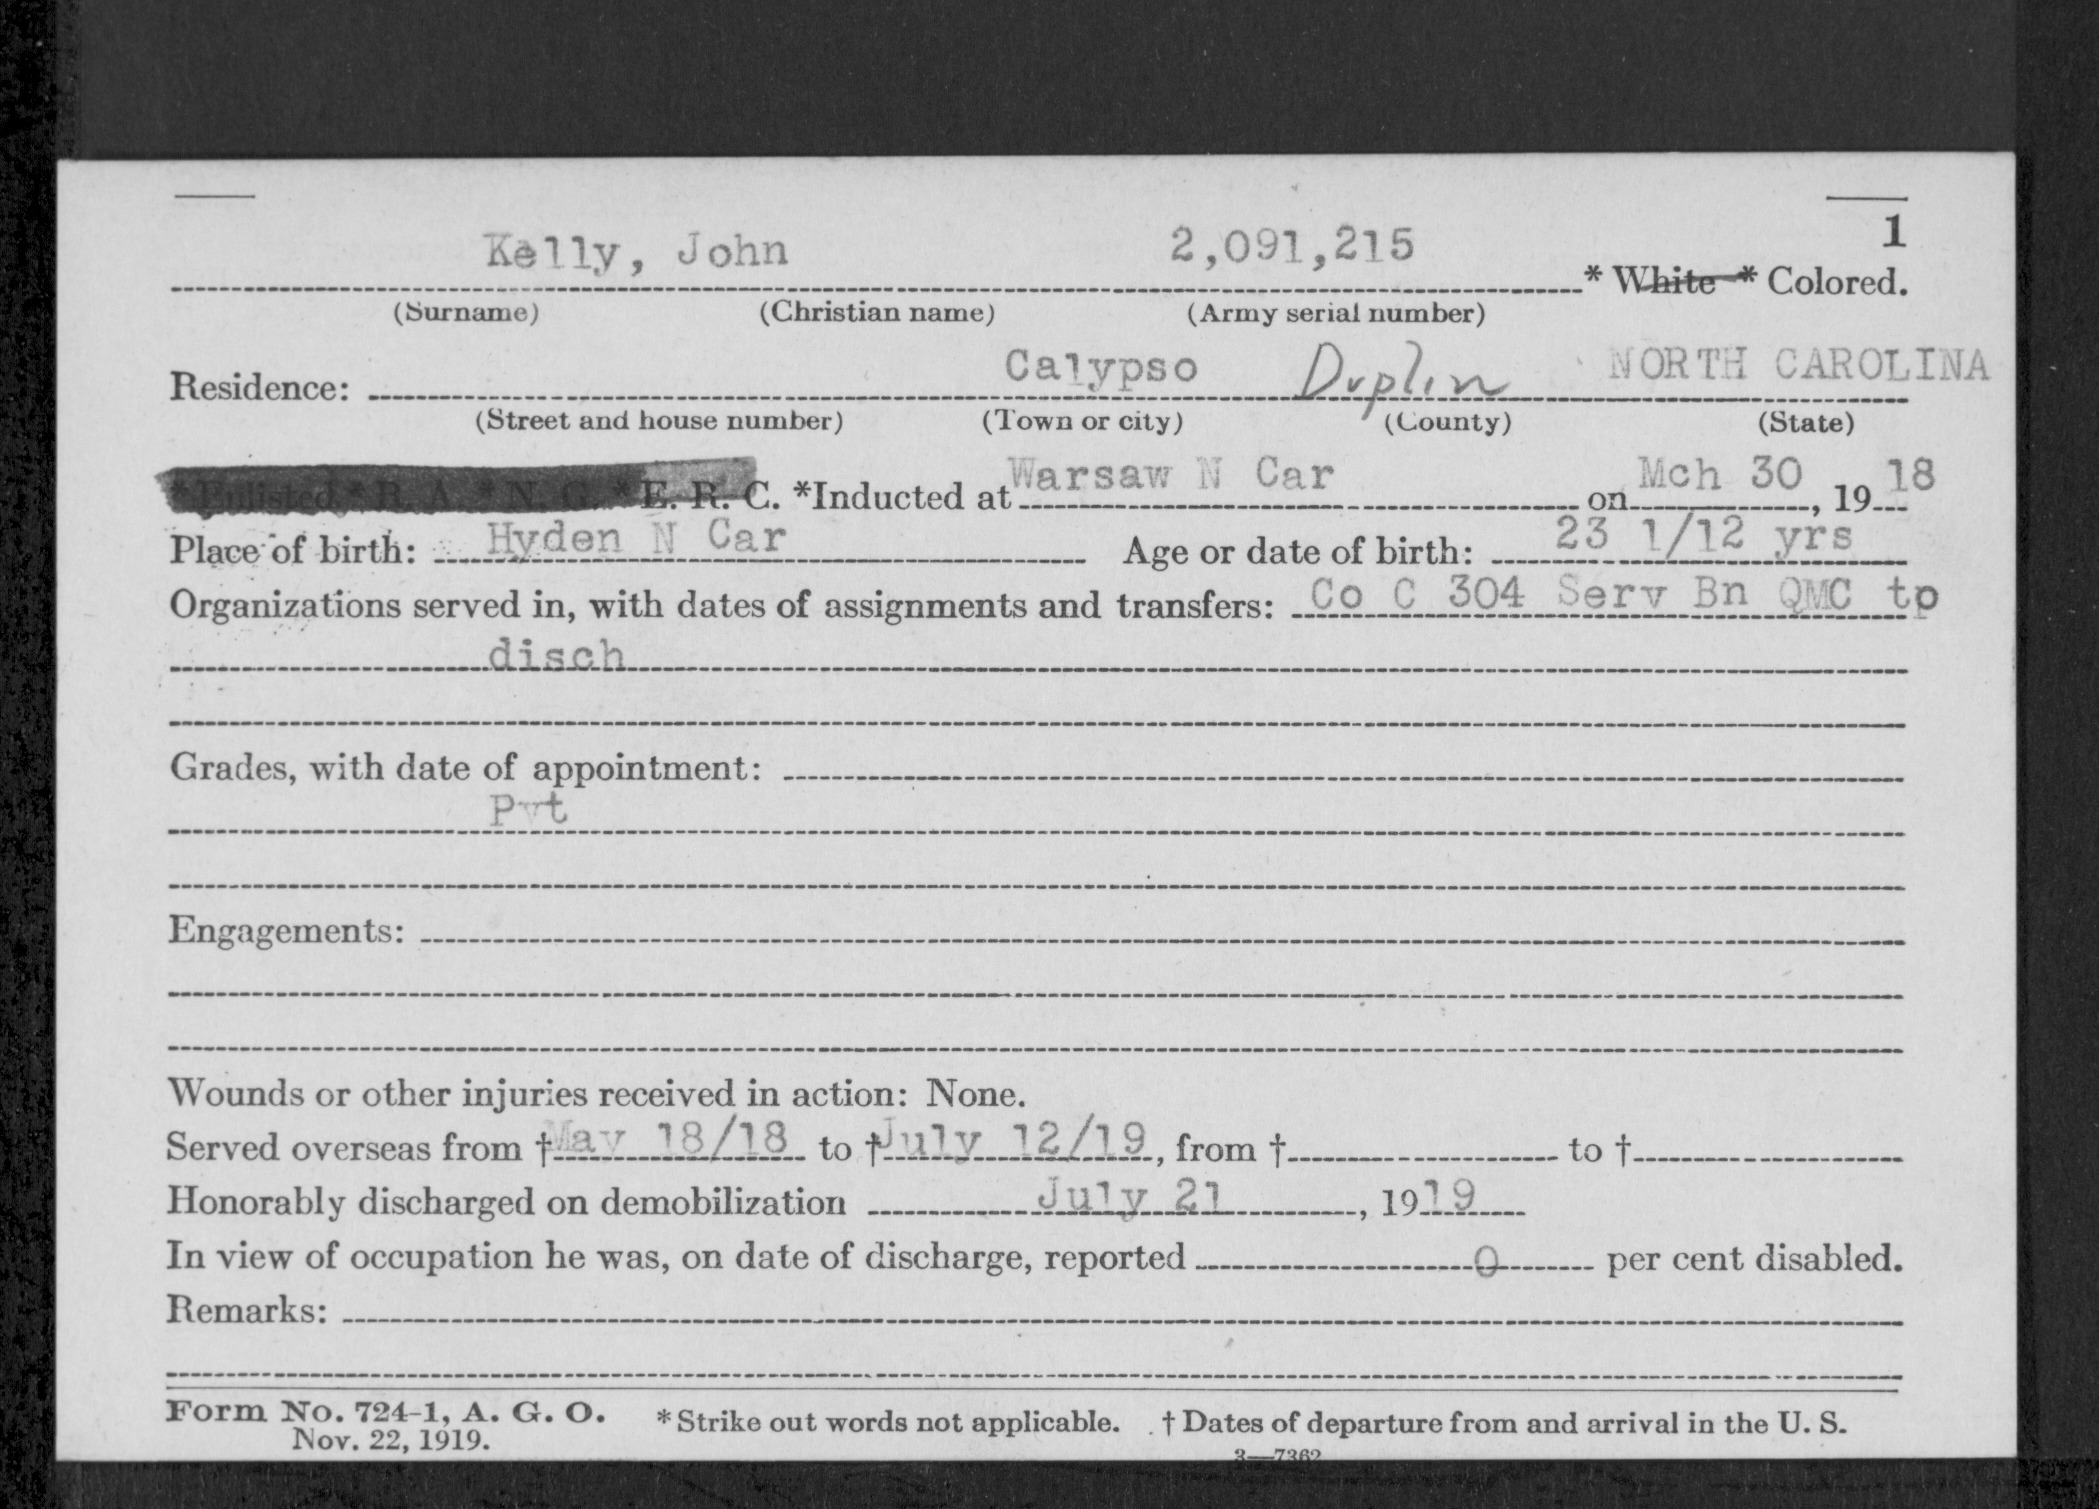 1
Kelly, John 2,091,215 * White * Colored.
(Surname) (Christian name) (Army serial number)
Residence: Calypso Duplin NORTH CAROLINA
(Street and house number) (Town or city) (County) (State)
* Enlisted * R. A. * N. G. * E. R. C. *Inducted at Warsaw N Car on Mch 30, 19 18
Place of birth: Hyden N Car Age or date of birth: 23 1/12 yrs
Organizations served in, with dates of assignments and transfers: Co C 304 Serv Bn QMC to
disch
Grades, with date of appointment:
Pvt
Engagements:
Wounds or other injuries received in action: None.
Served overseas from † May 18/18 to † July 12/19, from † to †
Honorably discharged on demobilization July 21, 1919
In view of occupation he was, on date of discharge, reported 0 per cent disabled.
Remarks:
Form No. 724-1, A. G. O. * Strike out words not applicable. † Dates of departure from and arrival in the U. S.
Nov. 22, 1919.
3—7362